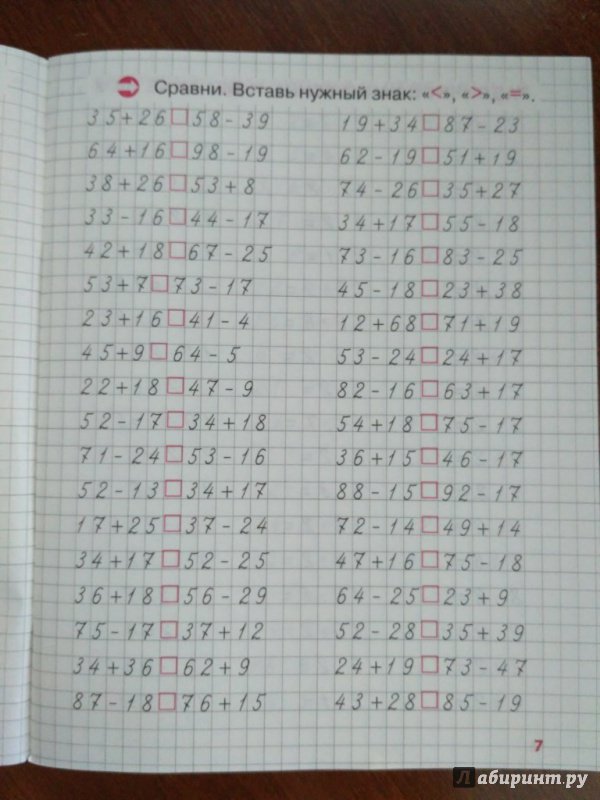 Сравни. Вставь нужный знак: «<», «>», «=».
35+26□58-39
64+16□98-19
38+26□53+8
33-16□44-17
42+18□67-25
53+7□73-17
23+16□41-4
45+9□64-5
22+18□47-9
52-17□34+18
71-24□53-16
52-13□34+17
17+25□37-24
34+17□52-25
36+18□56-29
75-17□37+12
34+36□62+9
87-18□76+15
19+34□87-23
62-19□51+19
74-26□35+27
34+17□55-18
73-16□83-25
45-18□23+38
12+68□71+19
53-24□24+17
82-16□63+17
54+18□75-17
36+15□46-17
88-15□92-17
72-14□49+14
47+16□75-18
64-25□23+9
52-28□35+39
24+19□73-47
43+28□85-19
7
Лабиринт.ру